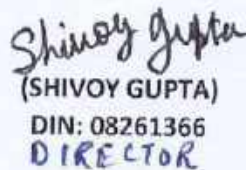 Shivoy Gupta
(SHIVOY GUPTA)
DIN: 08261366
DIRECTOR